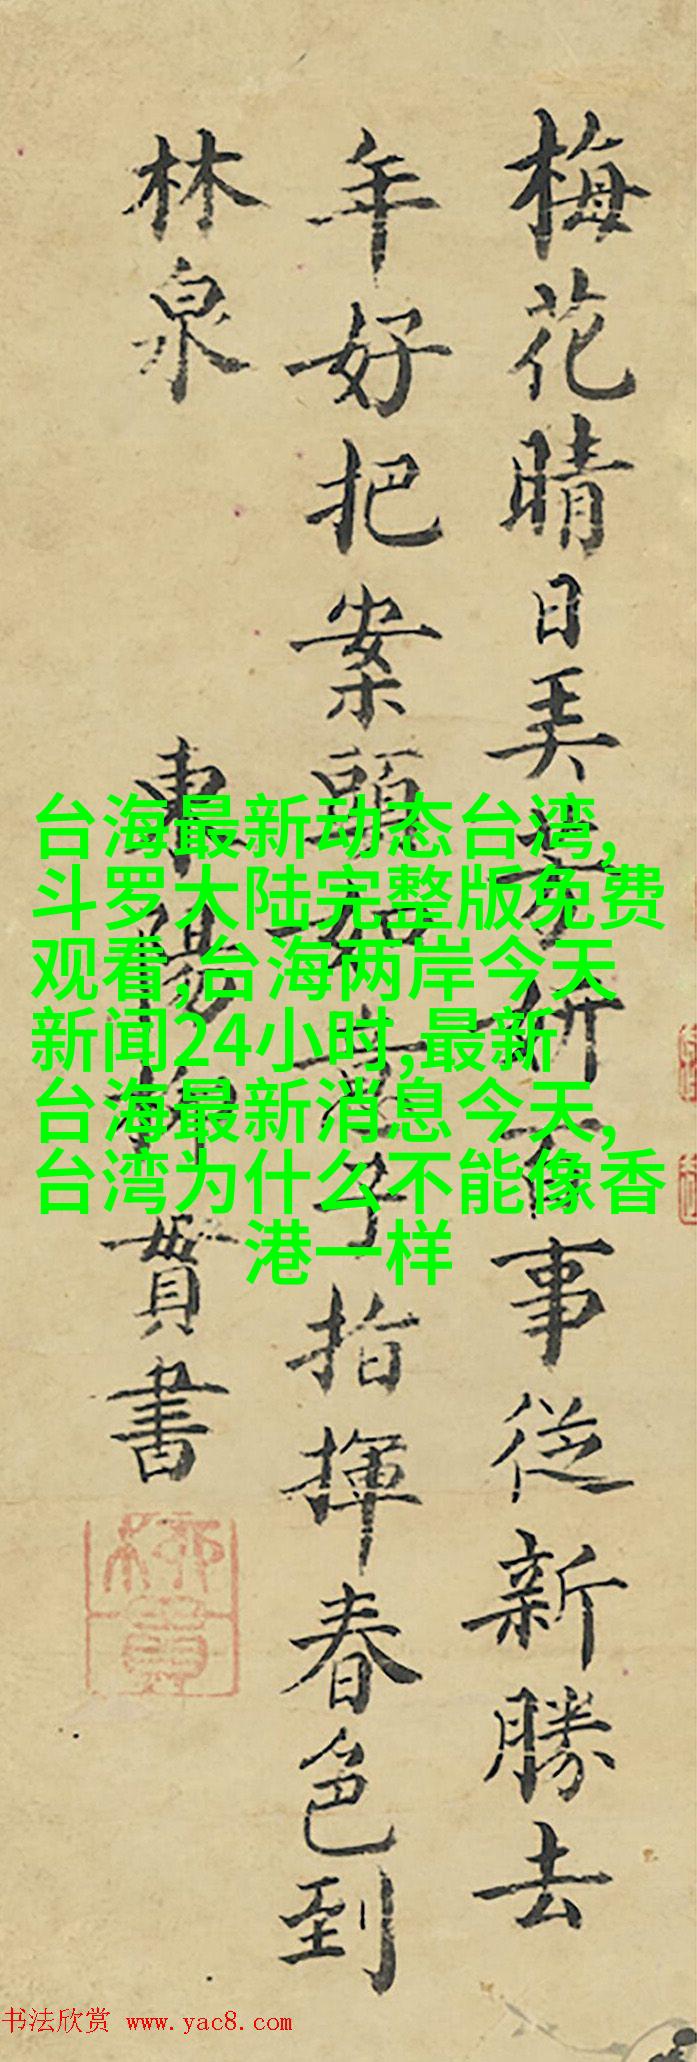 梅花晴日美妍百事従新勝去
年好把案頭如意子指揮春色到
林泉
東陽柳貫書
柳貫
台海最新动态台湾,
斗罗大陆完整版免费
观看,台海两岸今天
新闻24小时,最新
台海最新消息今天,
台湾为什么不能像香
港一样
书法欣赏 www.yac8.com